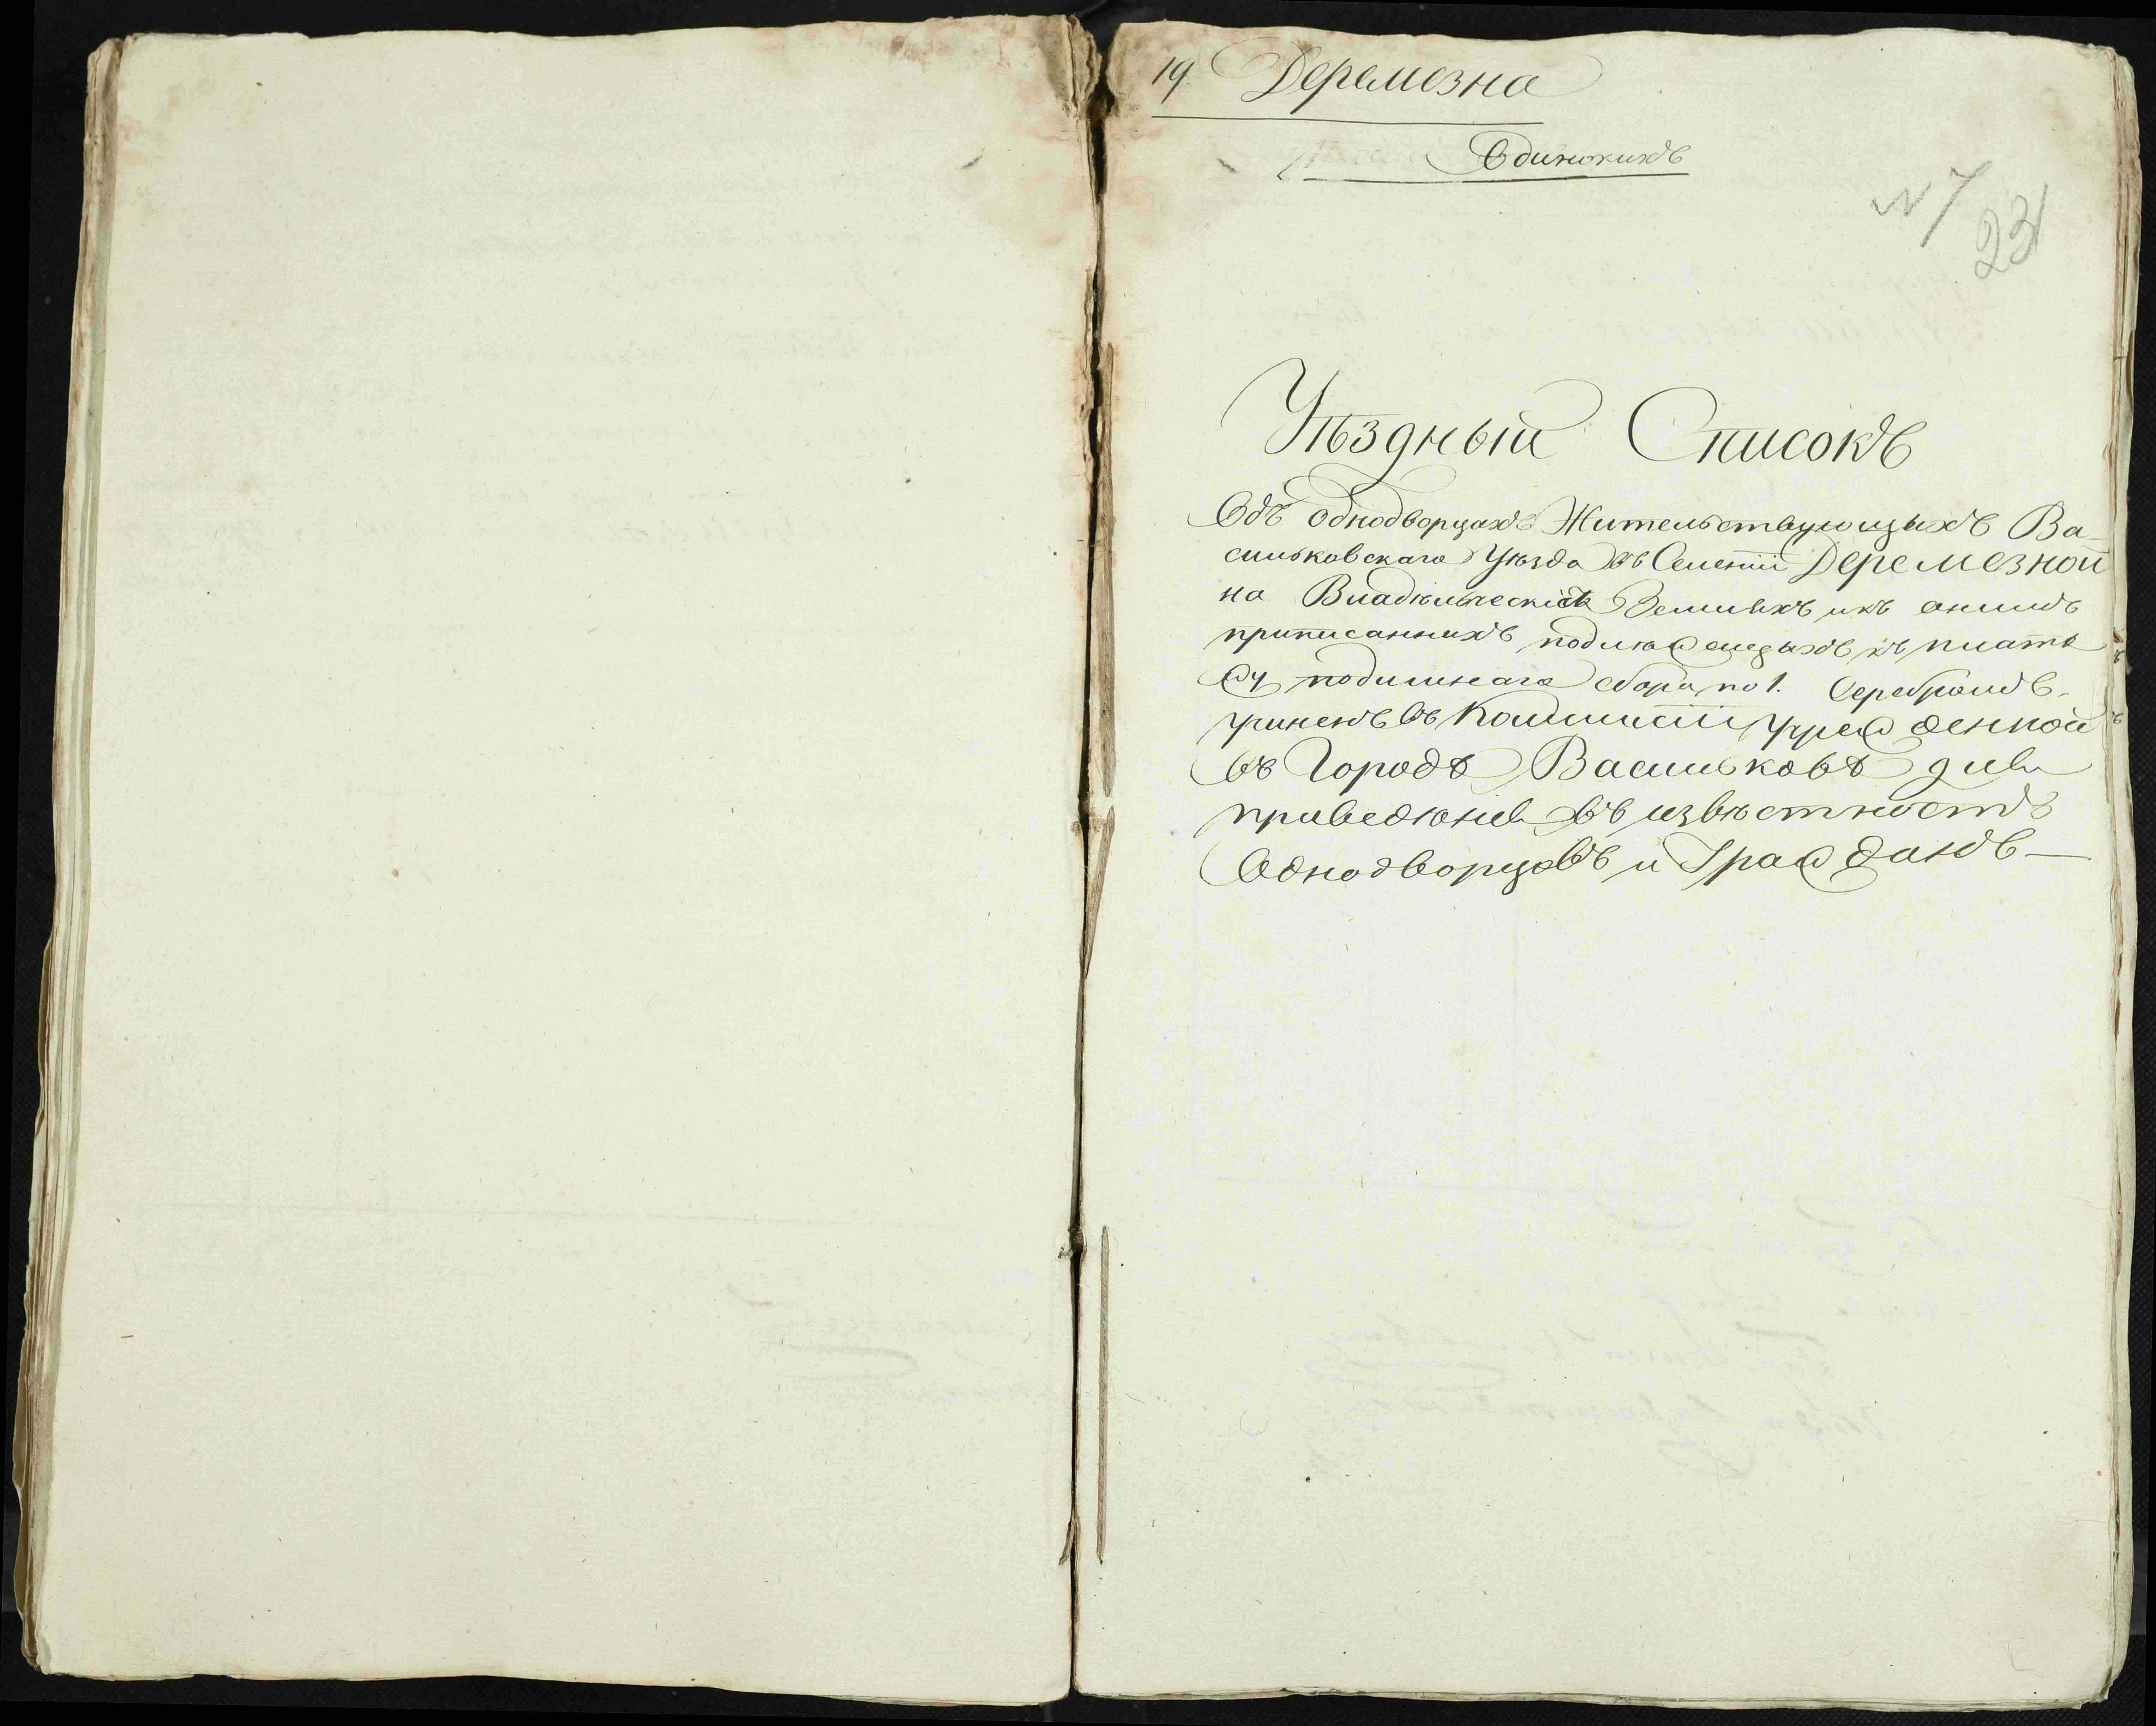 19 Деремезна
Одинокихъ
N 7
23
Уѣздный Списокъ
Объ однодворцахъ Жительствующихъ Ва-
сильковскаго Уѣзда въ Селеніи Деремезной
на Владѣльческихъ Земляхъ икъ онымъ
приписанныхъ подлежащыхъ къ плате
жу подымнаго сбора по 1. Серебромъ.
учиненъ въ Коммиссіи Учрежденной
въ Городѣ Васильковѣ для
приведенія въ извѣстность
Однодворцовъ и Гражданъ —